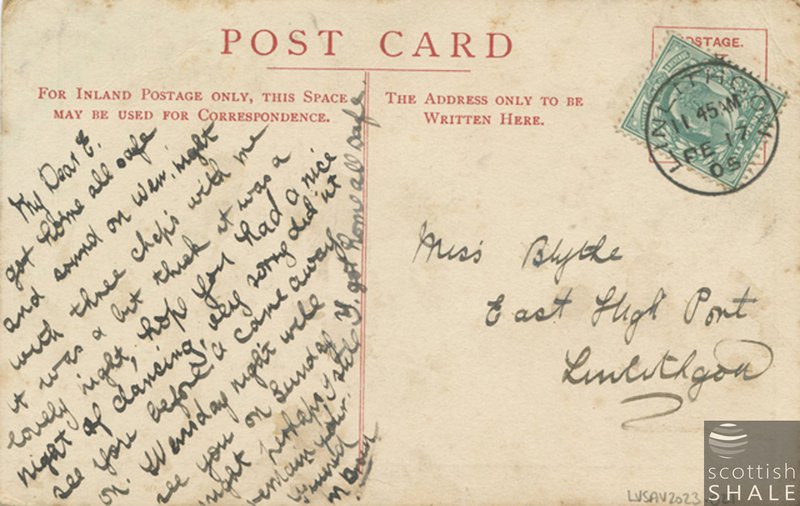 POST CARD
FOR INLAND POSTAGE ONLY, THIS SPACE
MAY BE USED FOR CORRESPONDENCE.
THE ADDRESS ONLY TO BE
WRITTEN HERE.
POSTAGE.
LINLITHGOW
11 45 AM
FE 17
05
My Dear E.
got home all safe
and sound on Wen. night
with three chaps with me
it was a bit thick it was a
lovely night, hope you had a nice
night of dancing, very sorry did'nt
see you before a came away
on. Wensday night will
see you on Sunday
night perhaps, I still
remain your
friend
I. got home all safe
Miss Blythe
East High Port
Linlithgow
LVSAV2023
scottish
SHALE